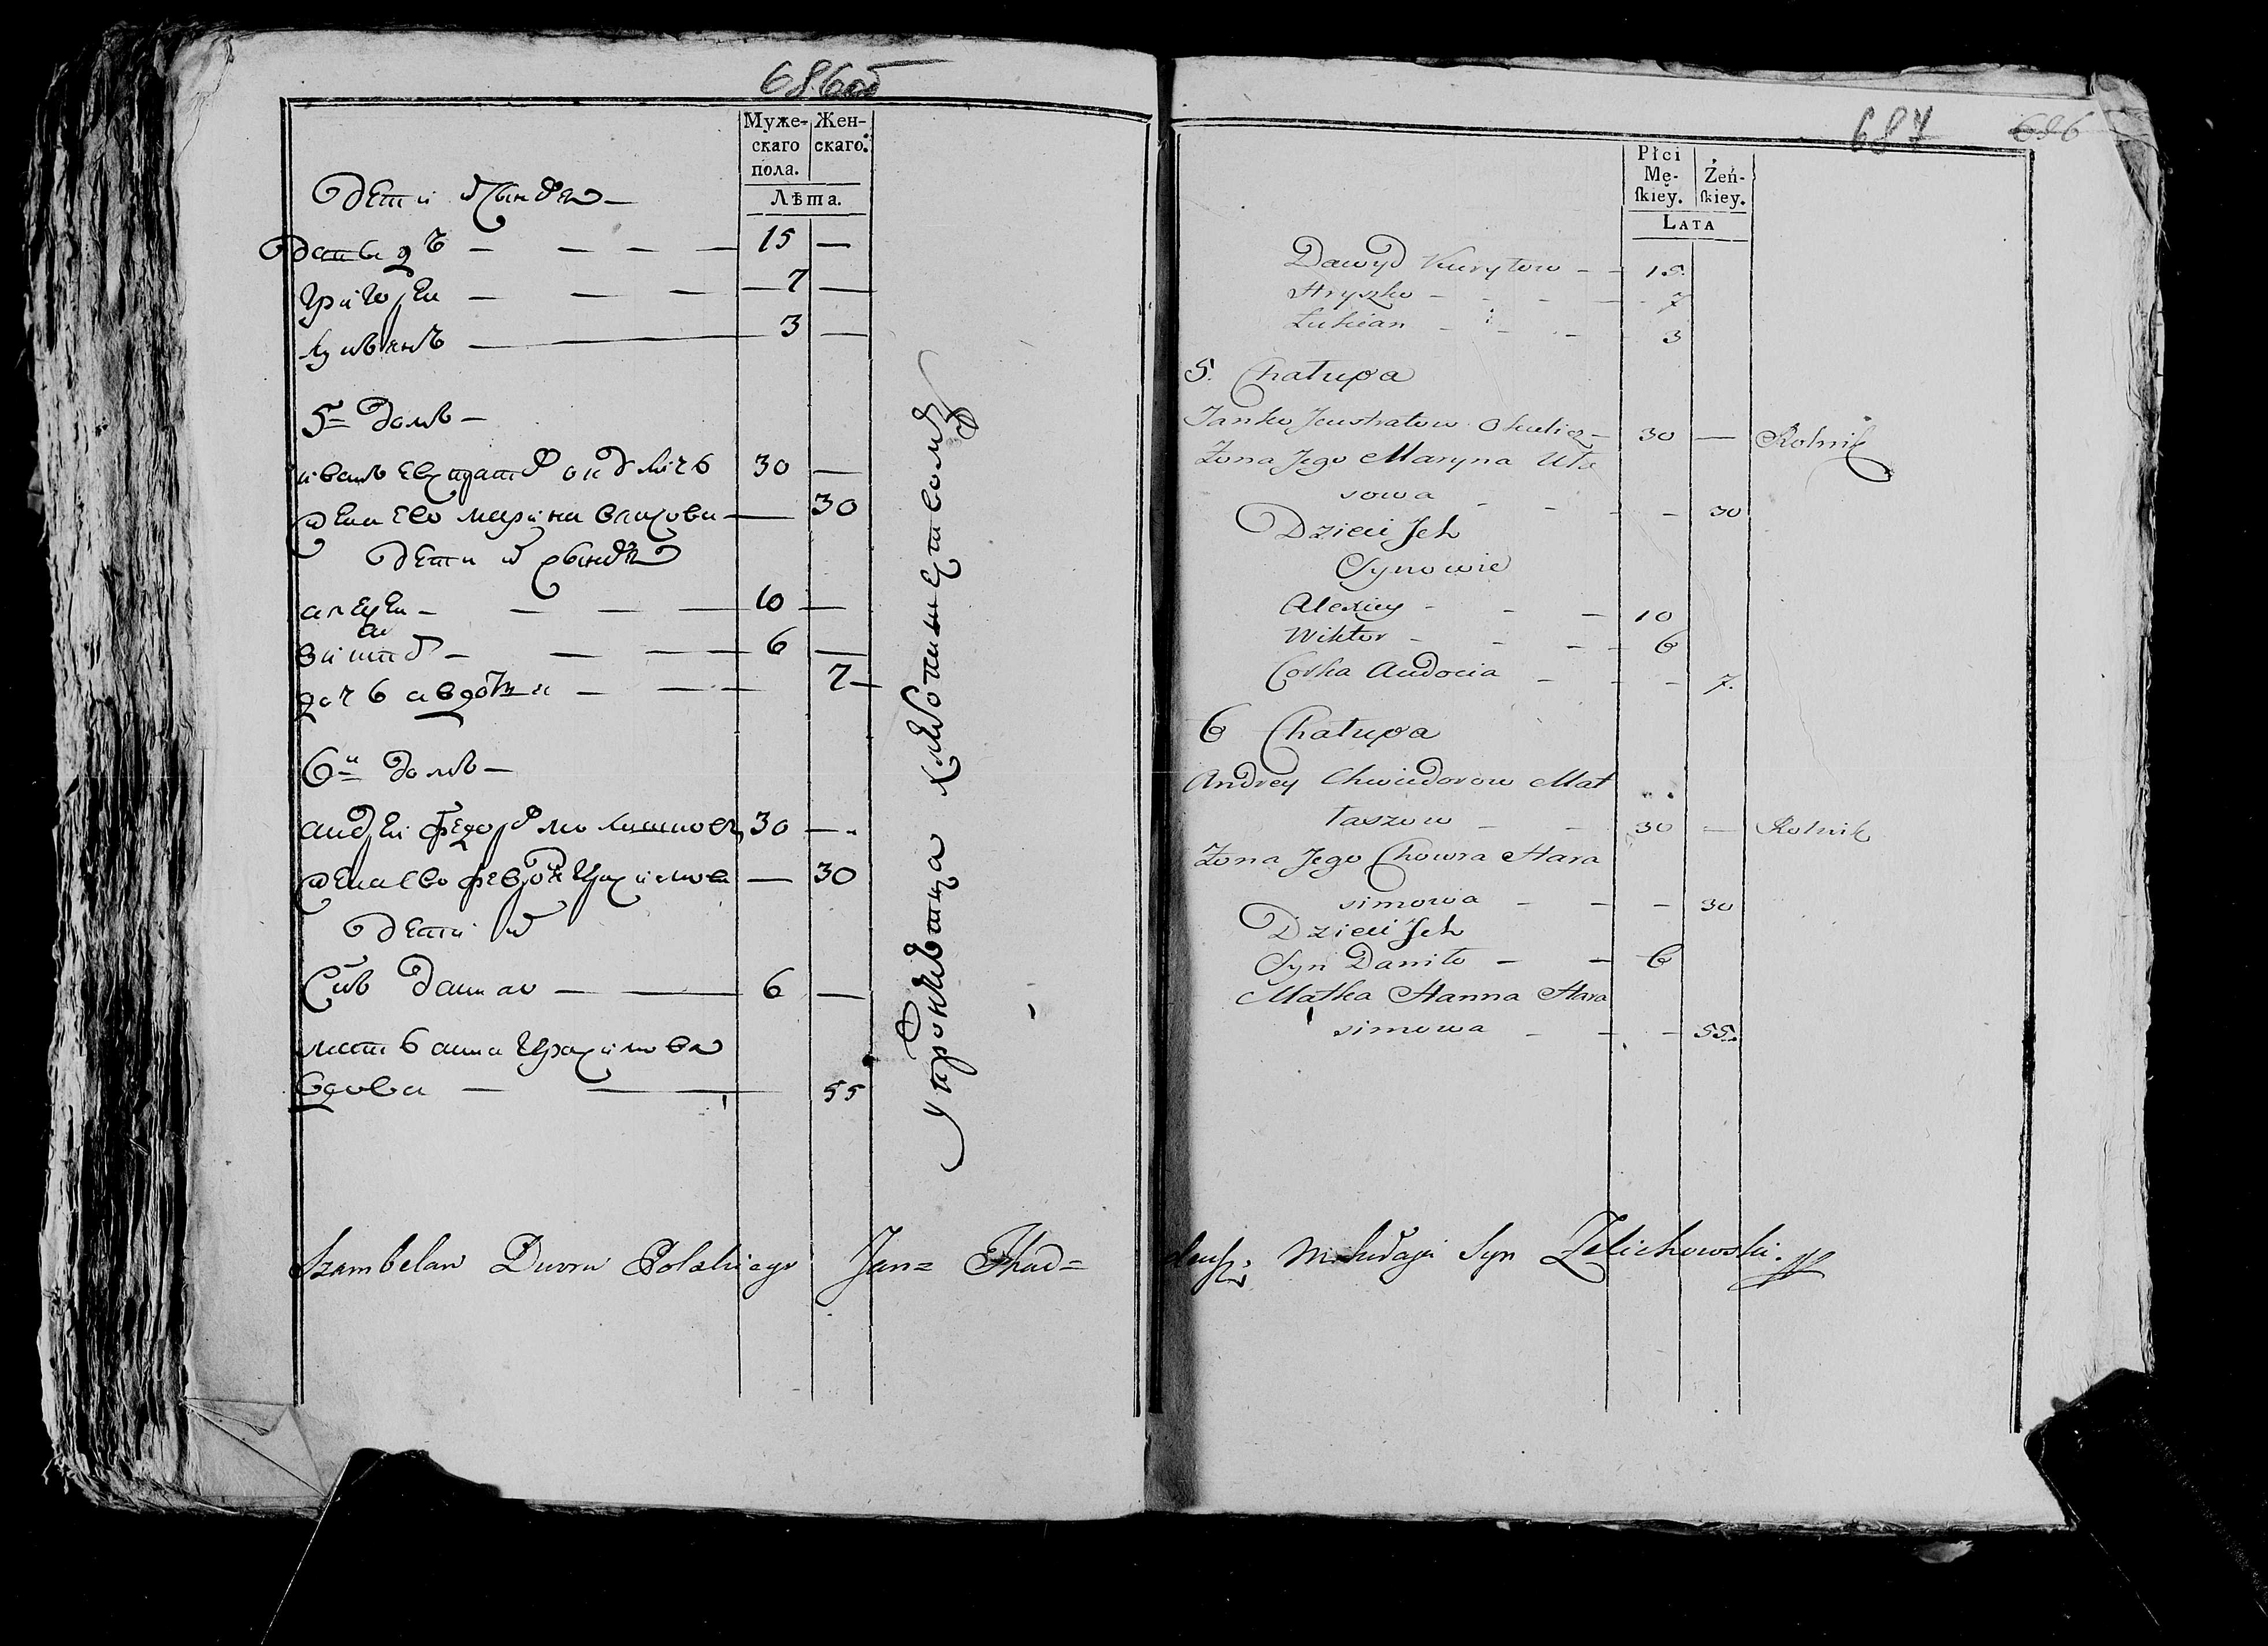 686об
Муже-
скаго
пола.
Жен-
скаго.
Лѣта.
Дети их сыновя —
Давыдъ — 15 —
Григорей — 7 —
Лукьянъ — 3 —
5й домъ —
Иванъ Евстратов 30 —
жена ево Марина Власова — 30
Дети их сыновя
Алексей — 10 —
6 —
дочь Авдотья — 7 —
6й домъ —
Андрей Федоров 30 —
жена ево Герасимова — 30
Дети их
Сынъ Данило — 6 —
мать Анна Герасимова
вдова — 55
упражняются хлебопашеством
Szambelan Dworu Polskiego Jan= Thad=
687 686
Płci
Mę-
ſkiey.
Żeń-
ſkiey.
LATA
Dawyd Kuryłow — 15
Hryszko — 7
Łukian — 3
5. Chałupa
Janko Jewstratow Okulicz — 30 — Rolnik
Żona Jego Maryna Uła
sowa — 30
Dzieci Jch
Synowie
Alexiey — 10
Wiktor — 6
Corka Audocia — 7.
6 Chałupa
Andrey Chwiedorow Mat
taszow — 30 — Rolnik
Żona Jego Chowra Hara
simowa — 30
Dzieci Jch
Syn Daniło — 6
Matka Hanna Hara
simowa — 55.
deusz Mikołaja Syn Żelichowski.